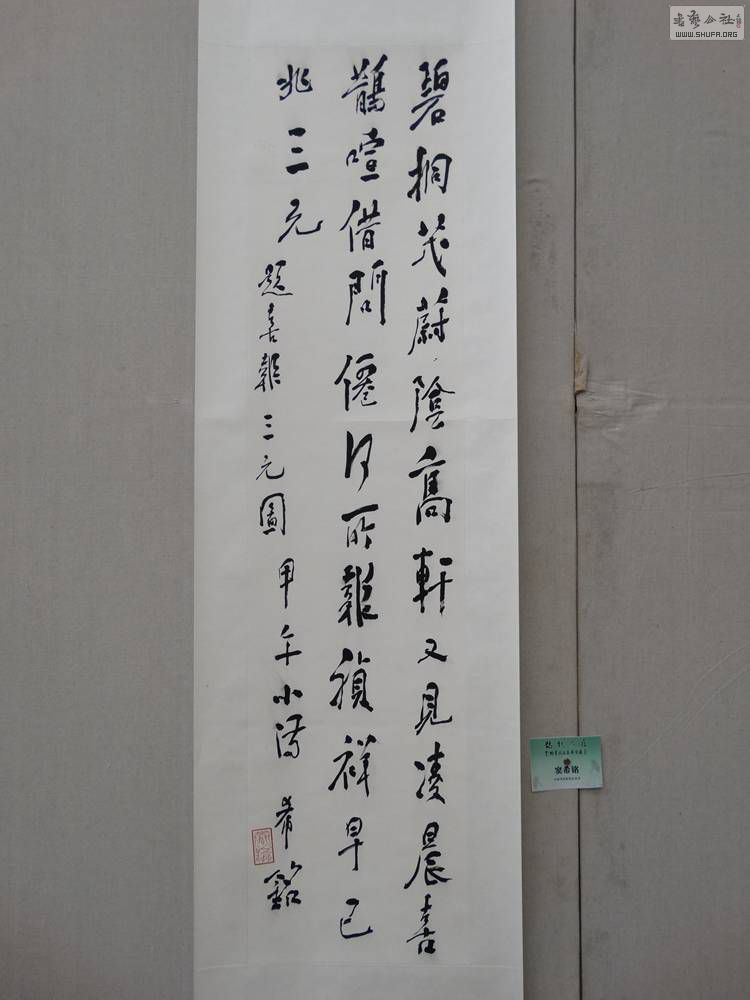 碧桐茂蔚陰高軒又見凌晨喜
鵲喧借問僊何所報禎祥早已
兆三元
題喜報三元圖 甲午小滿 希銘
安希銘
WWW.SHUFA.ORG